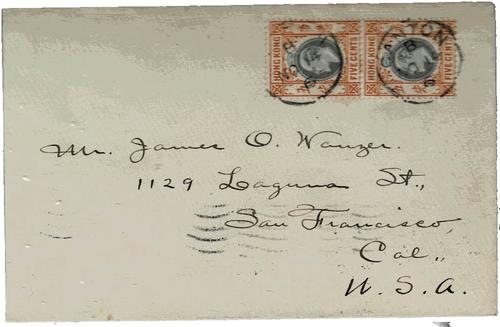 HONG KONG FIVE CENTS HONG KONG FIVE CENTS
CANTON
B
Mr. James O. Wanzer.
1129 Laguna St.,
San Francisco,
Cal.,
U. S. A.